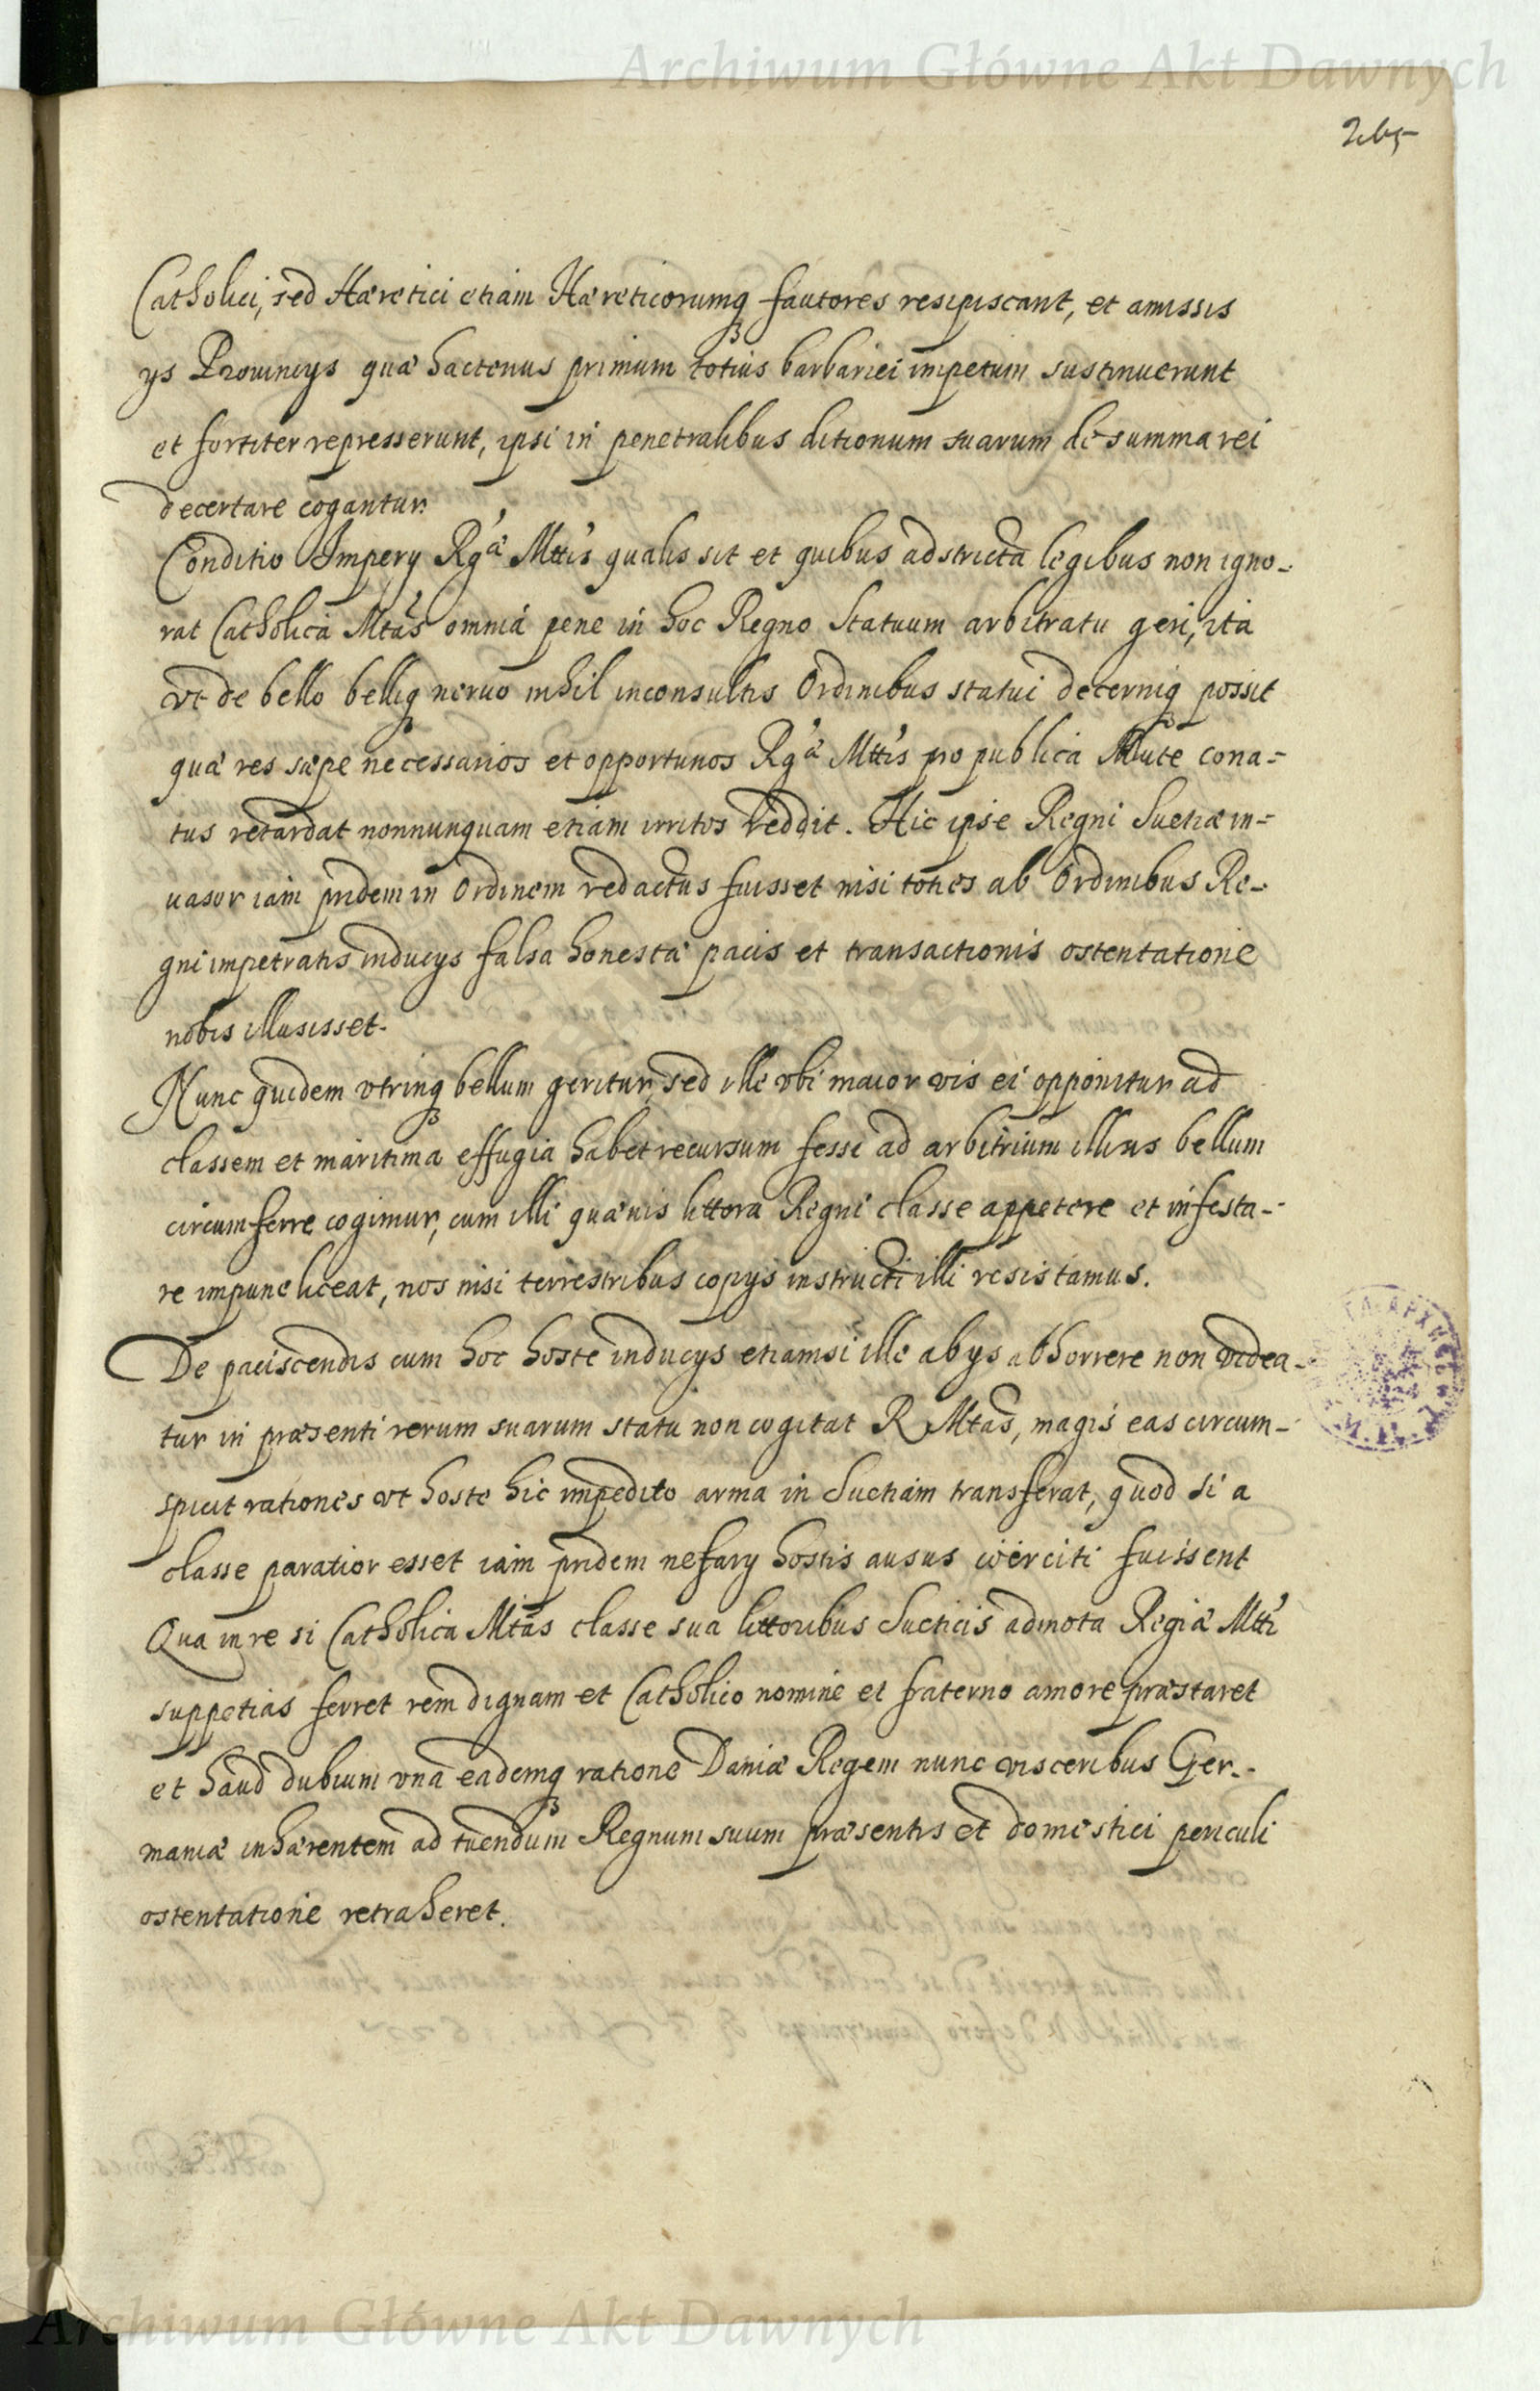 Archiwum Główne Akt Dawnych
Catholici, sed Hæretici etiam Hæreticorumq fautores resipiscant, et amissis
ys Prouincys quæ hactenus primum totius barbariei impetum sustinuerunt
et fortiter represserunt, ipsi in penetralibus ditionum suarum de summa rei
decertare cogantur.
Conditio Impery Rgæ Mttis qualis sit et quibus adstricta legibus non igno-
rat Catholica Mtas omnia pene in hoc Regno Statuum arbitratu geri, ita
vt de bello belliq neruo nihil inconsultis Ordinibus statui decerniq possit
quæ res sæpe necessarios et opportunos Rgæ Mttis pro publica salute cona-
tus retardat nonnunquam etiam irritos reddit. Hic ipse Regni Suetiæ in-
uasor iam pridem in Ordinem redactus fuisset nisi toties ab Ordinibus Re-
gni impetratis inducys falsa honestæ pacis et transactionis ostentatione
nobis illusisset.
Nunc quidem vtrinq bellum geritur, sed ille vbi maior vis ei opponitur ad
classem et maritima effugia habet recursum fessi ad arbitrium illius bellum
circumferre cogimur, cum illi quæuis littora Regni classe appetere et infesta-
re impune liceat, nos nisi terrestribus copys instructi illi resistamus.
De paciscendis cum hoc hoste inducys etiamsi ille ab ys abhorrere non videa-
tur in præsenti rerum suarum statu non cogitat R Mtas, magis eas circum-
spicit rationes vt hoste hic impedito arma in Suetiam transferat, quod si a
classe paratior esset iam pridem nefary hostis ausus coërciti fuissent
Qua in re si Catholica Mtas classe sua littoribus Sueticis admota Regiæ Mtti
suppetias ferret rem dignam et Catholico nomine et fraterno amore præstaret
et haud dubium vna eademq ratione Daniæ Regem nunc visceribus Ger-
maniæ inhærentem ad tuendum Regnum suum præsentis et domestici periculi
ostentatione retraheret.
Archiwum Główne Akt Dawnych